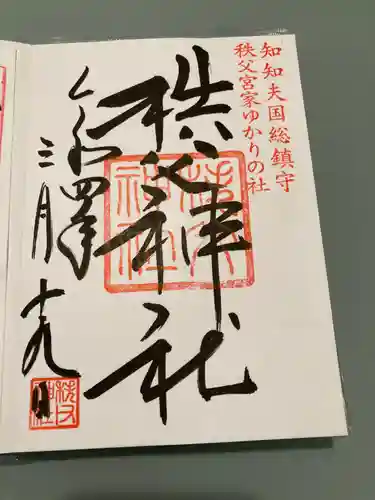 知知夫国総鎮守
秩父宮家ゆかりの社
秩父神社
秩父神社
令和四年
三月十九日
秩父神社